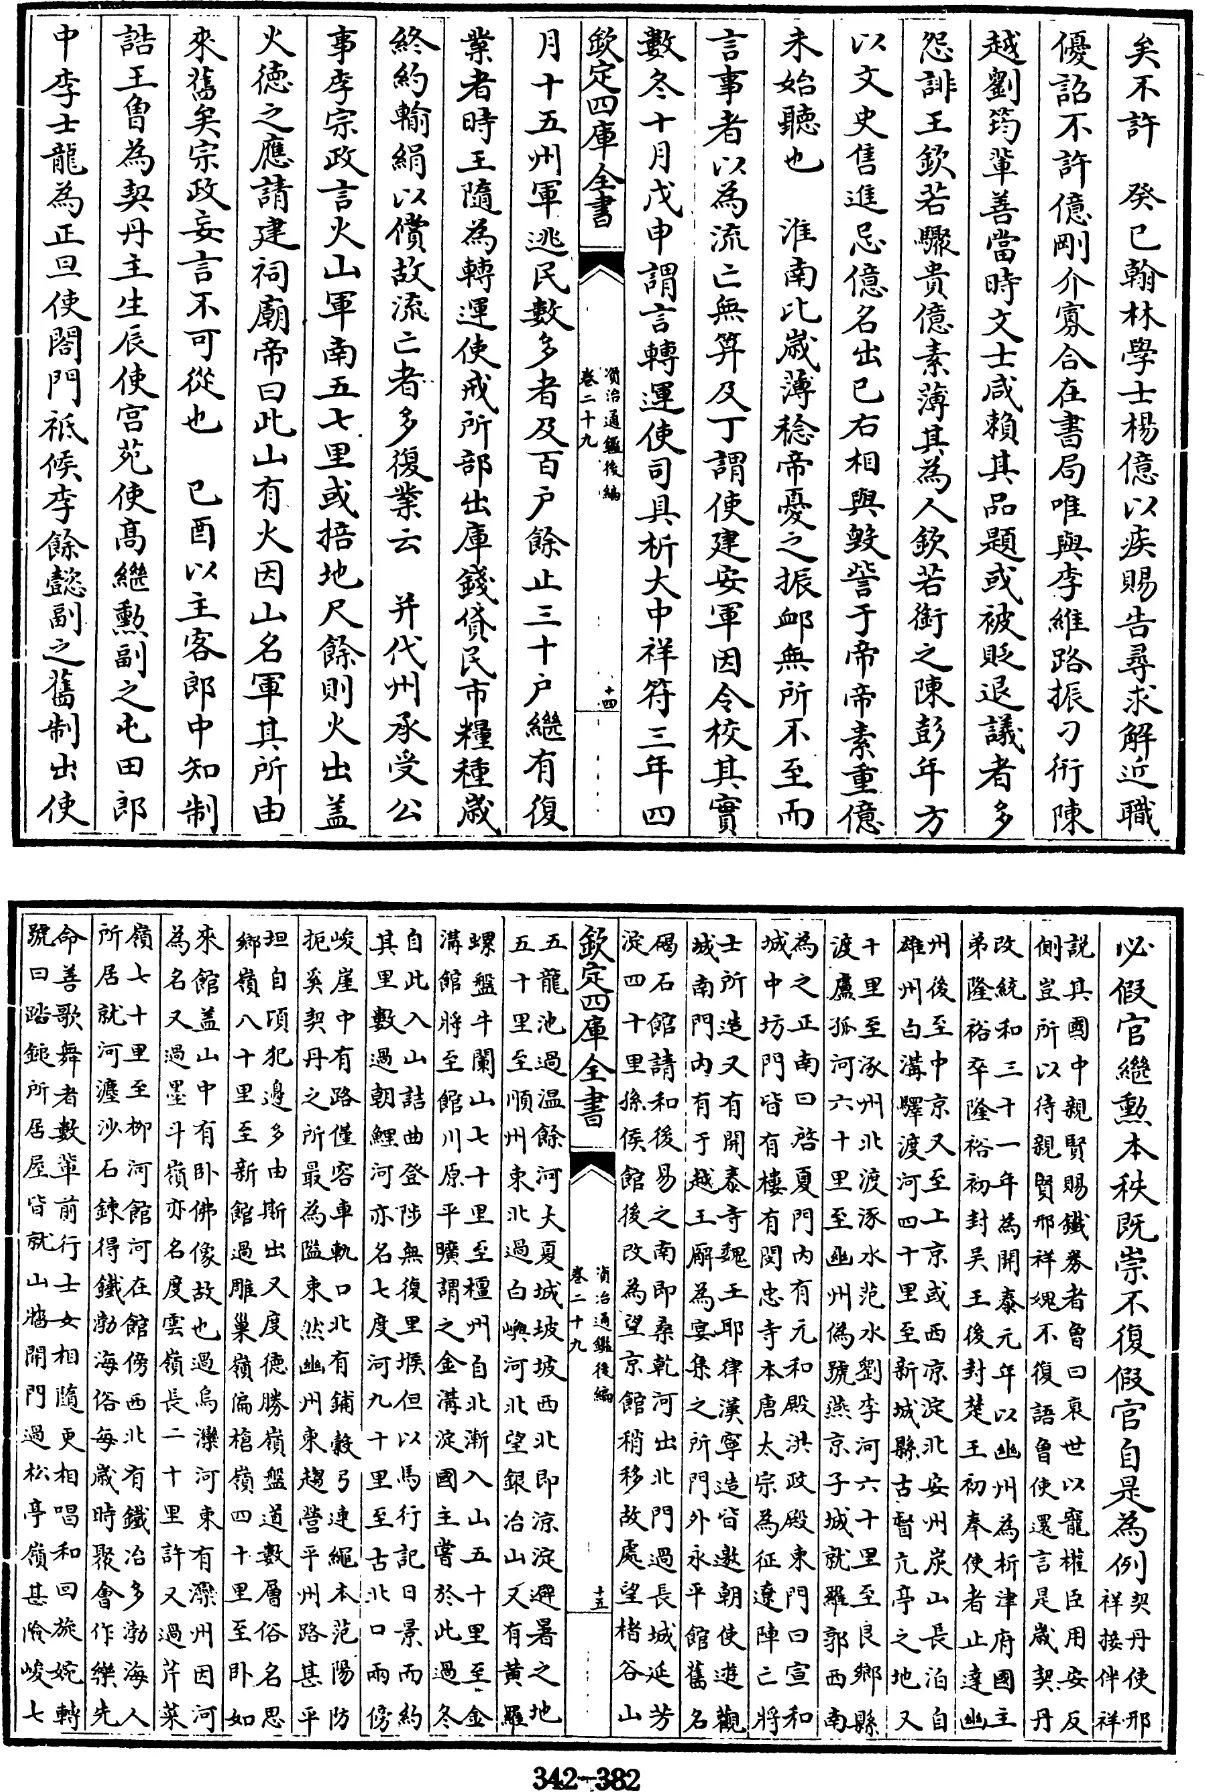 矣不許　癸巳翰林學士楊億以疾賜告尋求解近職
優詔不許億剛介寡合在書局唯與李維路振刁衎陳
越劉筠輩善當時文士咸賴其品題或被貶退議者多
怨誹王欽若驟貴億素薄其為人欽若銜之陳彭年方
以文史售進忌億名出已右相與毀訾于帝帝素重億
未始聽也　淮南比歲薄稔帝憂之振卹無所不至而
言事者以為流亡無算及丁謂使建安軍因令校其實
數冬十月戊申謂言轉運使司具析大中祥符三年四
欽定四庫全書
資治通鑑後編
卷二十九
十四
月十五州軍逃民數多者及百户餘止三十户繼有復
業者時王隨為轉運使戒所部出庫錢貸民市糧種歲
終約輸絹以償故流亡者多復業云　并代州承受公
事李宗政言火山軍南五七里或掊地尺餘則火出蓋
火德之應請建祠廟帝曰此山有火因山名軍其所由
來舊矣宗政妄言不可從也　已酉以主客郎中知制
誥王曾為契丹主生辰使宫苑使髙繼勳副之屯田郎
中李士龍為正旦使閤門祗候李餘懿副之舊制出使
必假官繼勳本秩既崇不復假官自是為例
契丹使邢
祥接伴祥
說其國中親賢賜鐵券者曾曰衰世以寵權臣用安反
側豈所以待親賢邢祥媿不復語曾使還言是歲契丹
改統和三十一年為開泰元年以幽州為析津府國主
弟隆裕卒隆裕初封吴王後封楚王初奉使者止達幽
州後至中京又至上京或西凉淀北安州炭山長泊自
雄州白溝驛渡河四十里至新城縣古督亢亭之地又
十里至涿州北渡涿水范水劉李河六十里至良鄉縣
渡盧孤河六十里至幽州偽號燕京子城就羅郭西南
為之正南曰啓夏門内有元和殿洪政殿東門曰宣和
城中坊門皆有樓有閔忠寺本唐太宗為征遼陣亡將
士所造又有開泰寺魏王耶律漢寧造皆邀朝使遊觀
城南門内有于越王廨為宴集之所門外永平館舊名
碣石館請和後易之南即桑乾河出北門過長城延芳
淀四十里孫侯館後改為望京館稍移故處望楮谷山
五龍池過温餘河大夏城坡坡西北即涼淀避暑之地
五十里至順州東北過白嶼河北望銀冶山又有黄羅
螺盤牛闌山七十里至檀州自北漸入山五十里至金
溝館將至館川原平曠謂之金溝淀國主嘗於此過冬
自此入山詰曲登陟無復里堠但以馬行記日景而約
其里數過朝鯉河亦名七度河九十里至古北口兩傍
峻崖中有路僅容車軌口北有鋪彀弓連繩本范陽防
扼奚契丹之所最為隘束然幽州東趨營平州路甚平
坦自頃犯邊多由斯出又度德勝嶺盤道數層俗名思
鄉嶺八十里至新館過雕巢嶺偏槍嶺四十里至卧如
來館蓋山中有卧佛像故也過烏灤河東有灤州因河
為名又過墨斗嶺亦名度雲嶺長二十里許又過芹菜
嶺七十里至柳河館河在館傍西北有鐵冶多渤海人
所居就河漉沙石鍊得鐵渤海俗每歲時聚會作樂先
命善歌舞者數輩前行士女相隨更相唱和回旋婉轉
號曰踏鎚所居屋皆就山牆開門過松亭嶺甚險峻七
欽定四庫全書
資治通鑑後編
卷二十九
十五
342-382